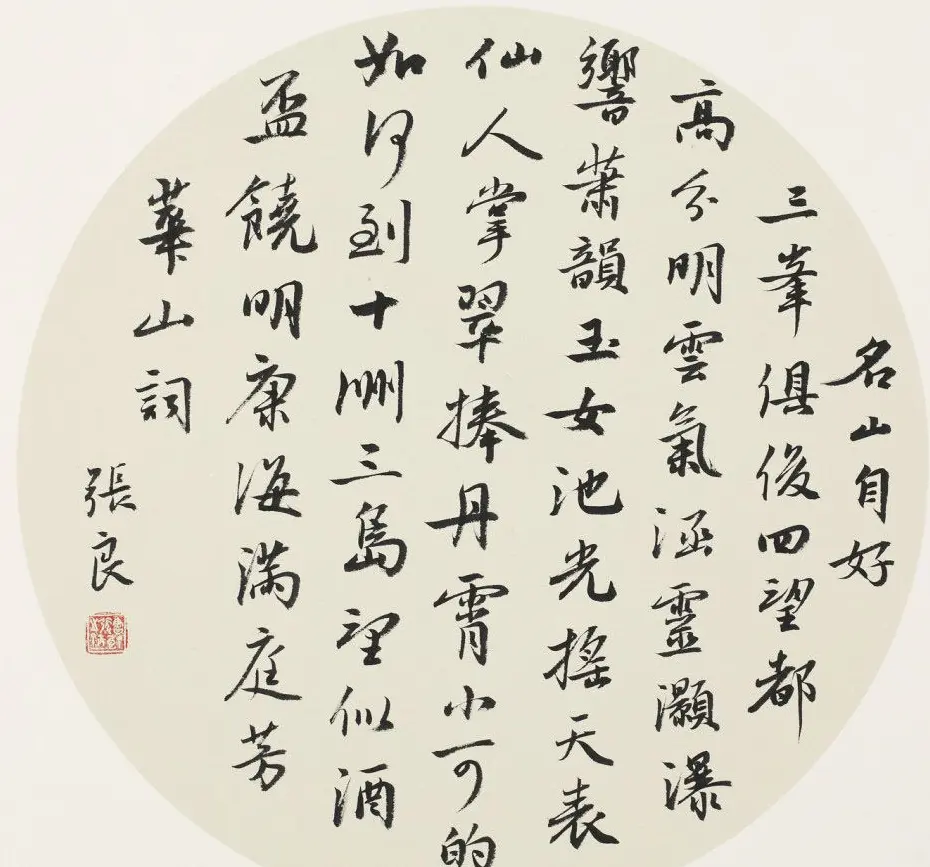 名山自好
三峯俱後四望都
高分明雲氣涵靈灝瀑
響蕭韻玉女池光搖天表
仙人掌翠捧丹霄小可的
如何到十洲三島望似酒
盃饒明康海滿庭芳
華山詞
張良